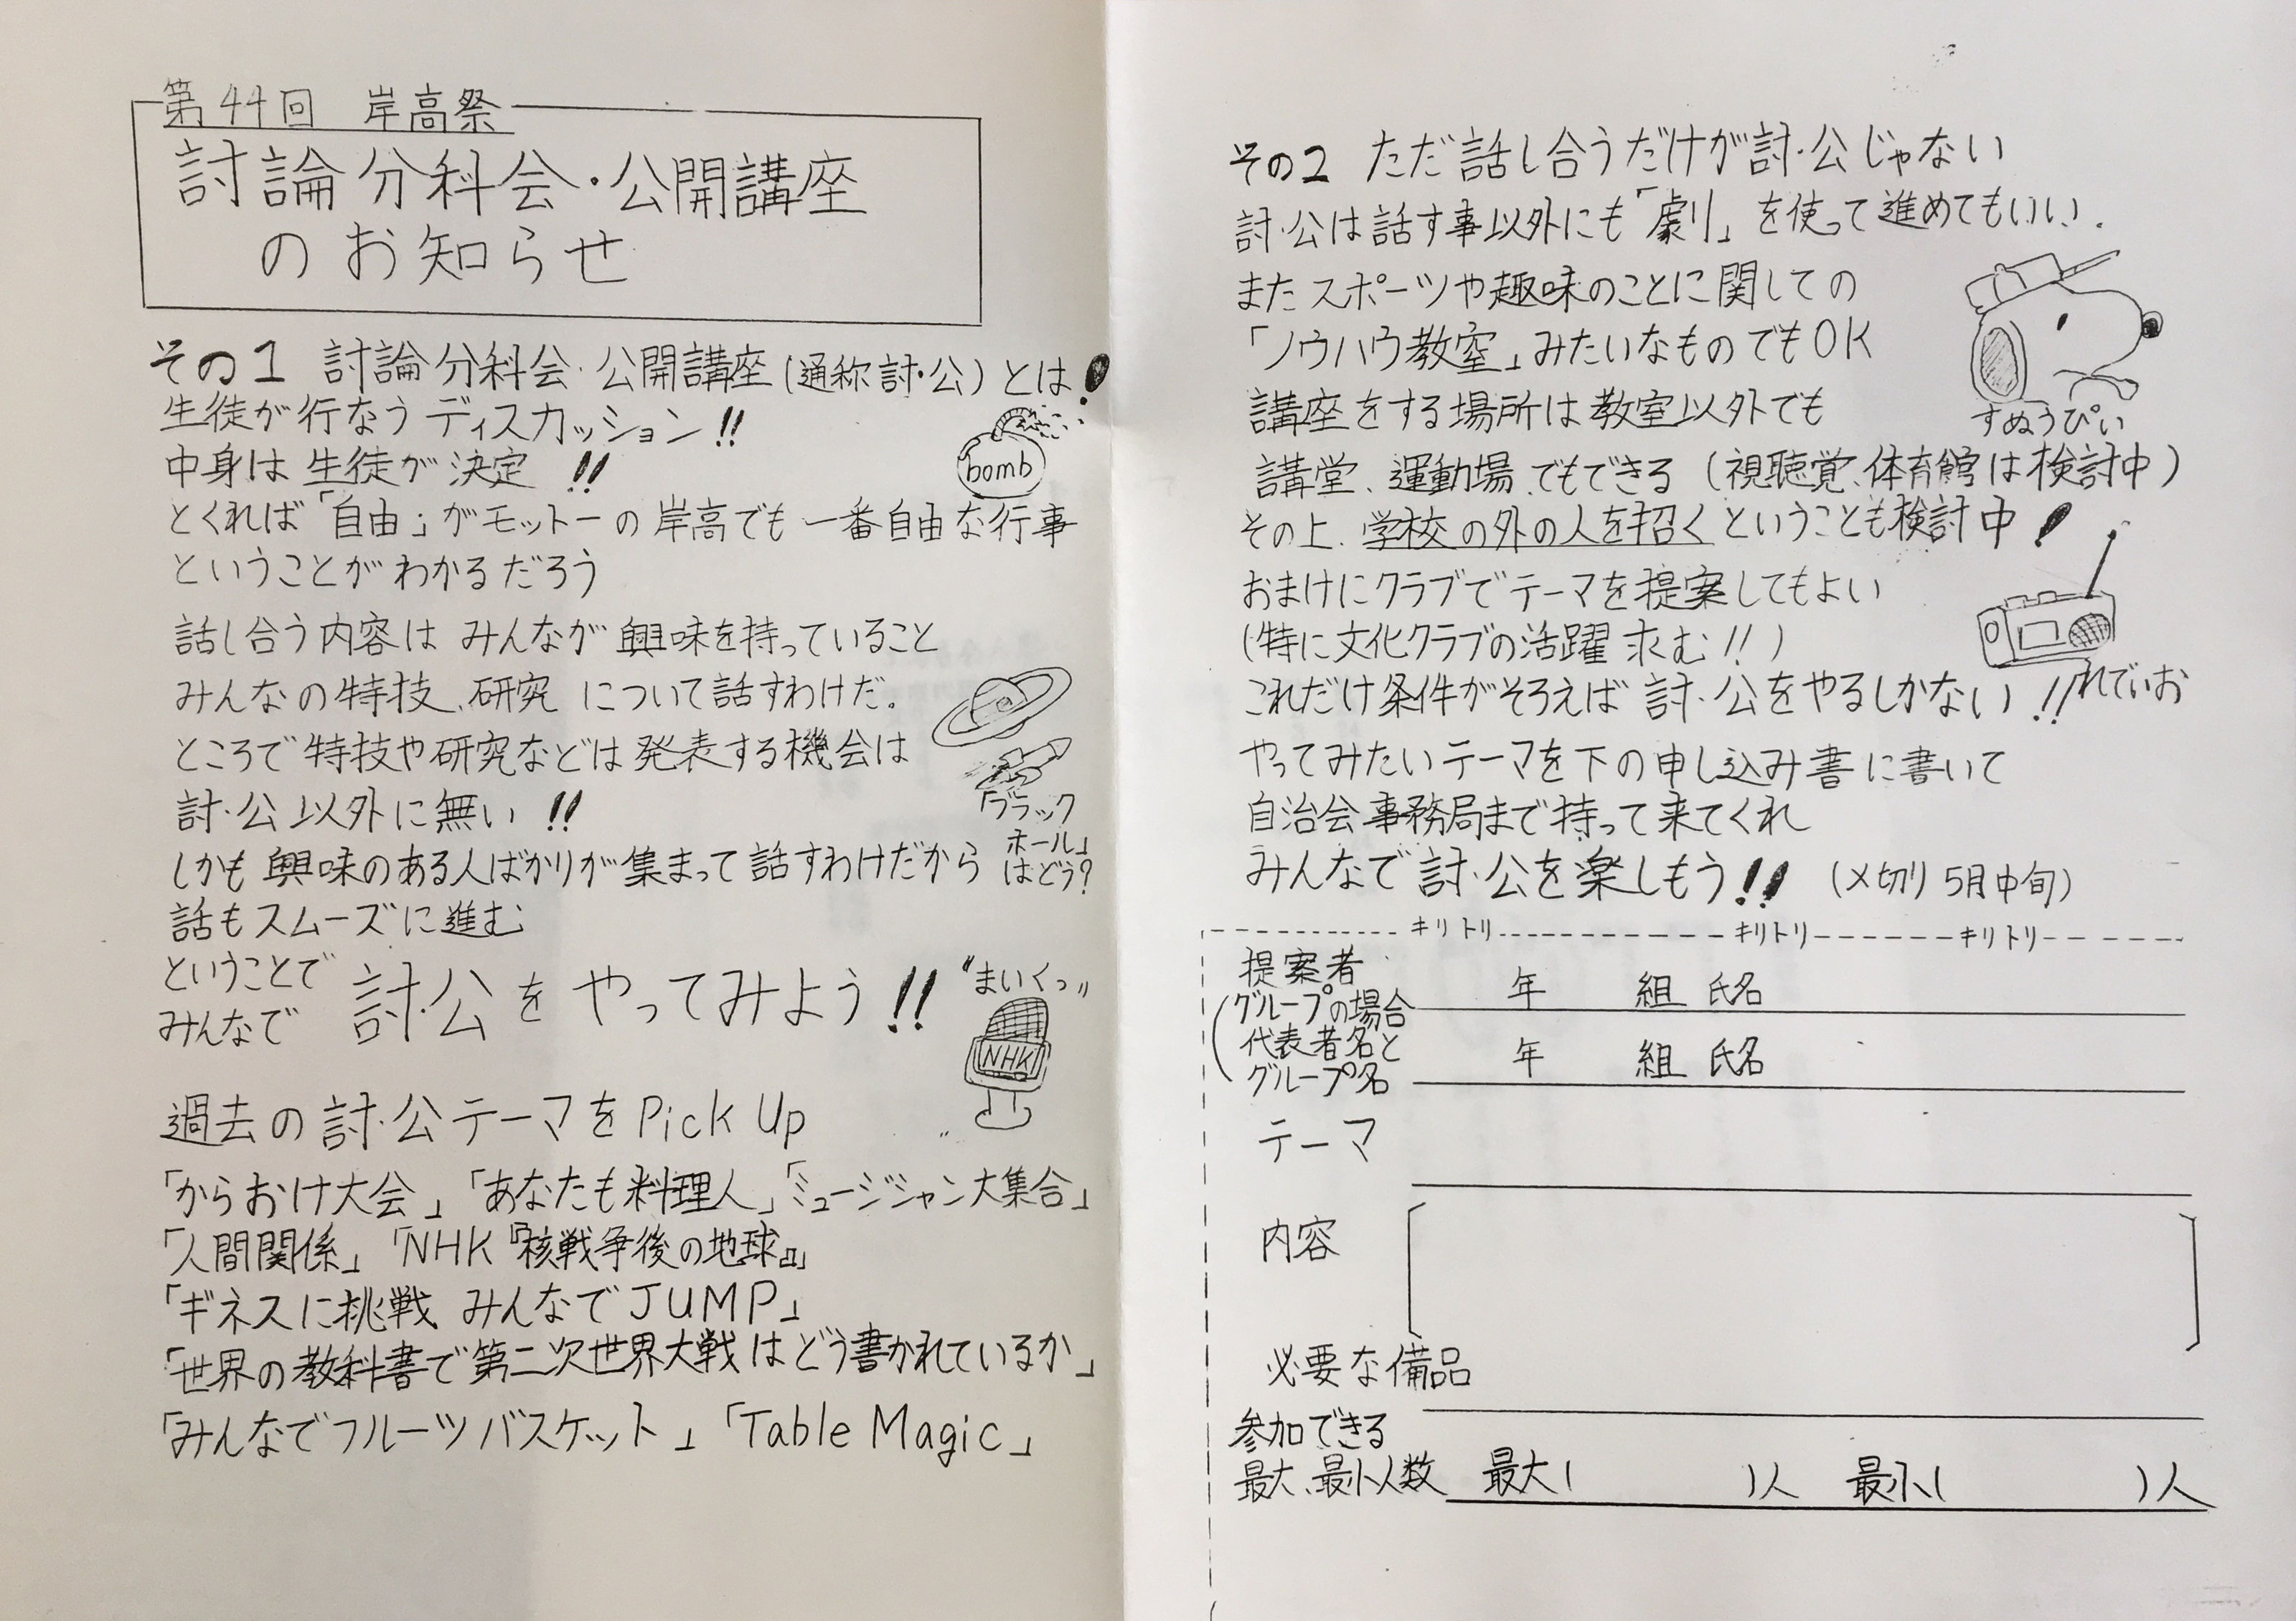 第44回 岸高祭
討論分科会・公開講座
のお知らせ
その1 討論分科会・公開講座(通称討・公)とは!
生徒が行なうディスカッション!!
中身は生徒が決定!!
bomb
とくれば「自由」がモットーの岸高でも一番自由な行事
ということがわかるだろう
話し合う内容はみんなが興味を持っていること
みんなの特技、研究 について話すわけだ。
ところで特技や研究などは発表する機会は
討・公以外に無い!!
「ブラック
ホール」
はどう?
しかも興味のある人ばかりが集まって話すわけだから
話もスムーズに進む
ということで
みんなで 討・公をやってみよう!!
"まいくっ"
NHK
過去の討・公テーマをPick Up
「からおけ大会」「あなたも料理人」「ミュージシャン大集合」
「人間関係」「NHK『核戦争後の地球』」
「ギネスに挑戦 みんなでJUMP」
「世界の教科書で第二次世界大戦はどう書かれているか」
「みんなでフルーツバスケット」「Table Magic」
その2 ただ話し合うだけが討・公じゃない
討・公は話す事以外にも「劇」を使って進めてもいい.
またスポーツや趣味のことに関しての
「ノウハウ教室」みたいなものでもOK
すぬうぴい
講座をする場所は教室以外でも
講堂、運動場、でもできる(視聴覚、体育館は検討中)
その上、学校の外の人を招くということも検討中!
おまけにクラブでテーマを提案してもよい
(特に文化クラブの活躍求む!!)
れでぃお
これだけ条件がそろえば討・公をやるしかない!!
やってみたいテーマを下の申し込み書に書いて
自治会事務局まで持って来てくれ
みんなで討・公を楽しもう!! (〆切り5月中旬)
キリトリ キリトリ キリトリ
提案者 年 組 氏名
(グループの場合
代表者名と 年 組 氏名
グループ名
テーマ
内容
必要な備品
参加できる
最大、最小人数 最大( )人 最小( )人